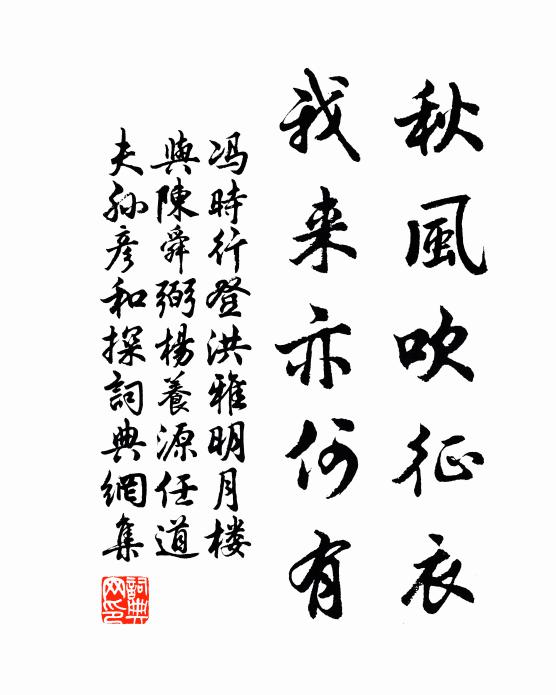 秋風吹征衣
我来亦何有
冯時行登洪雅明月楼
與陳舜弼楊養源任道
夫孙彦和探詞典網集
詞典網印